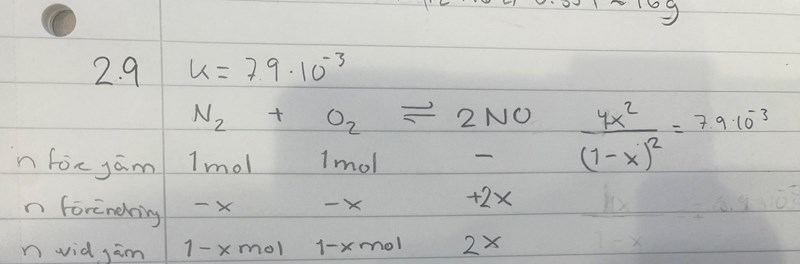 2.9 K = 7.9·10⁻³
N₂ + O₂ ⇌ 2NO 4x²/(1-x)² = 7.9·10⁻³
n före jäm 1mol 1mol -
n förändring -x -x +2x
n vid jäm 1-x mol 1-x mol 2x